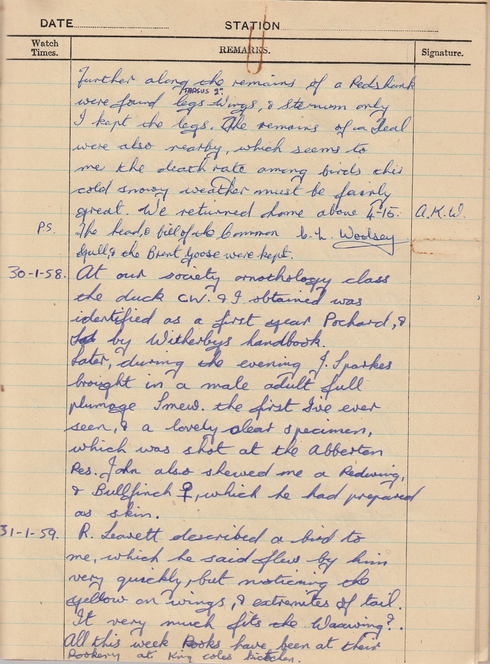 DATE STATION
Watch Times. REMARKS. Signature.
Further along the remains of a Redshank
TARSUS 2".
were found legs wings, & sternum only
I kept the legs. The remains of a Teal
were also nearby, which seems to
me the death rate among birds this
cold snowy weather must be fairly
great. We returned home above 4-15. A.K.W.
P.S. The head & bill of the Common C. L. Woolsey
Gull, & the Brent Goose were kept.
30-1-58. At our society ornothology class
the duck C.W. & I obtained was
identified as a first year Pochard, &
by Witherbys handbook.
Later, during the evening J. Sparkes
brought in a male adult full
plumage Smew. the first I've ever
seen, & a lovely clear specimen,
which was shot at the Abberton
Res. John also shewed me a Redwing,
& Bullfinch ♀, which he had prepared
as skin.
31-1-59. R. Leavett described a bird to
me, which he said flew by him
very quickly, but noticing the
yellow on wings, & extremites of tail.
It very much fits the Waxwing?.
All this week Rooks have been at their
Rookery at King coles kitchen.